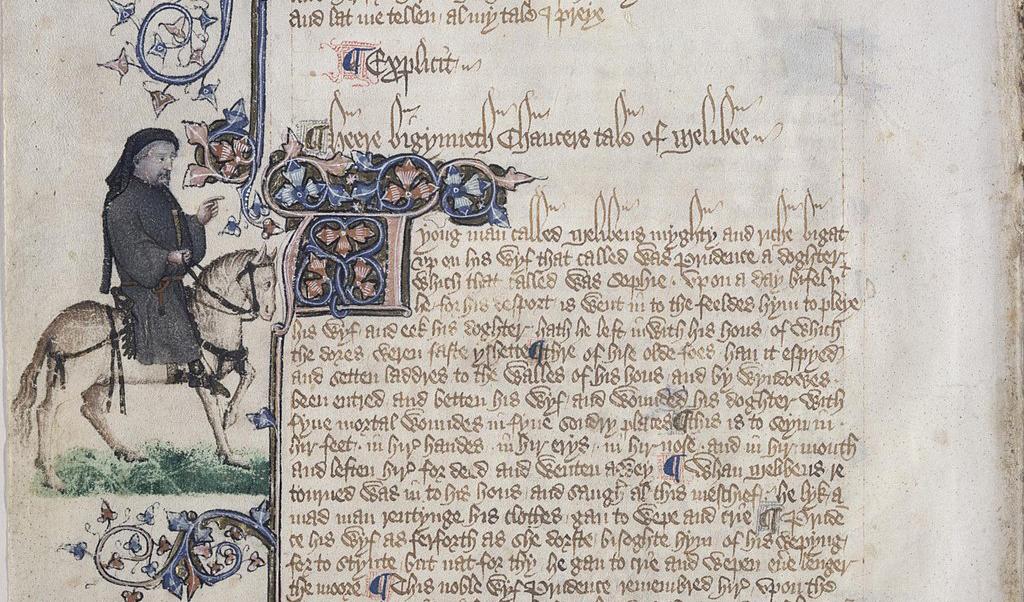 and lat me tellen al my tale I preye
Explicit
Heere bigynneth Chaucers tale of Melibee
A yong man called Melibeus myghty and riche bigat
vp on his wyf that called was Prudence a doghter
which that called was Sophie. Vpon a day bifel þt
he for his desport is went in to the feeldes hym to pleye
his wyf and eek his doghter hath he left in with his hous of which
the dores weren faste yshette ¶ thre of hise olde foes han it espyed
and setten laddres to the walles of his hous and by wyndowes
been entred and betten his wyf and wounded his doghter with
fyue mortal woundes in fyue sondry places ¶ this is to seyn in
hir feet. in hir handes. in hir erys. in hir nose. and in hir mouth
and leften hir for deed and wenten awey ¶ Whan Melibeus re
tourned was in to his hous and saugh al this meschief. he lyk a
mad man rentynge his clothes. gan to wepe and crie ¶ Pruden
ce his wyf as ferforth as she dorste bisoghte hym of his wepyng
for to stynte but nat for thy he gan to crie and wepen euere lenger
the moore ¶ This noble wyf Prudence remembred hir vpon the